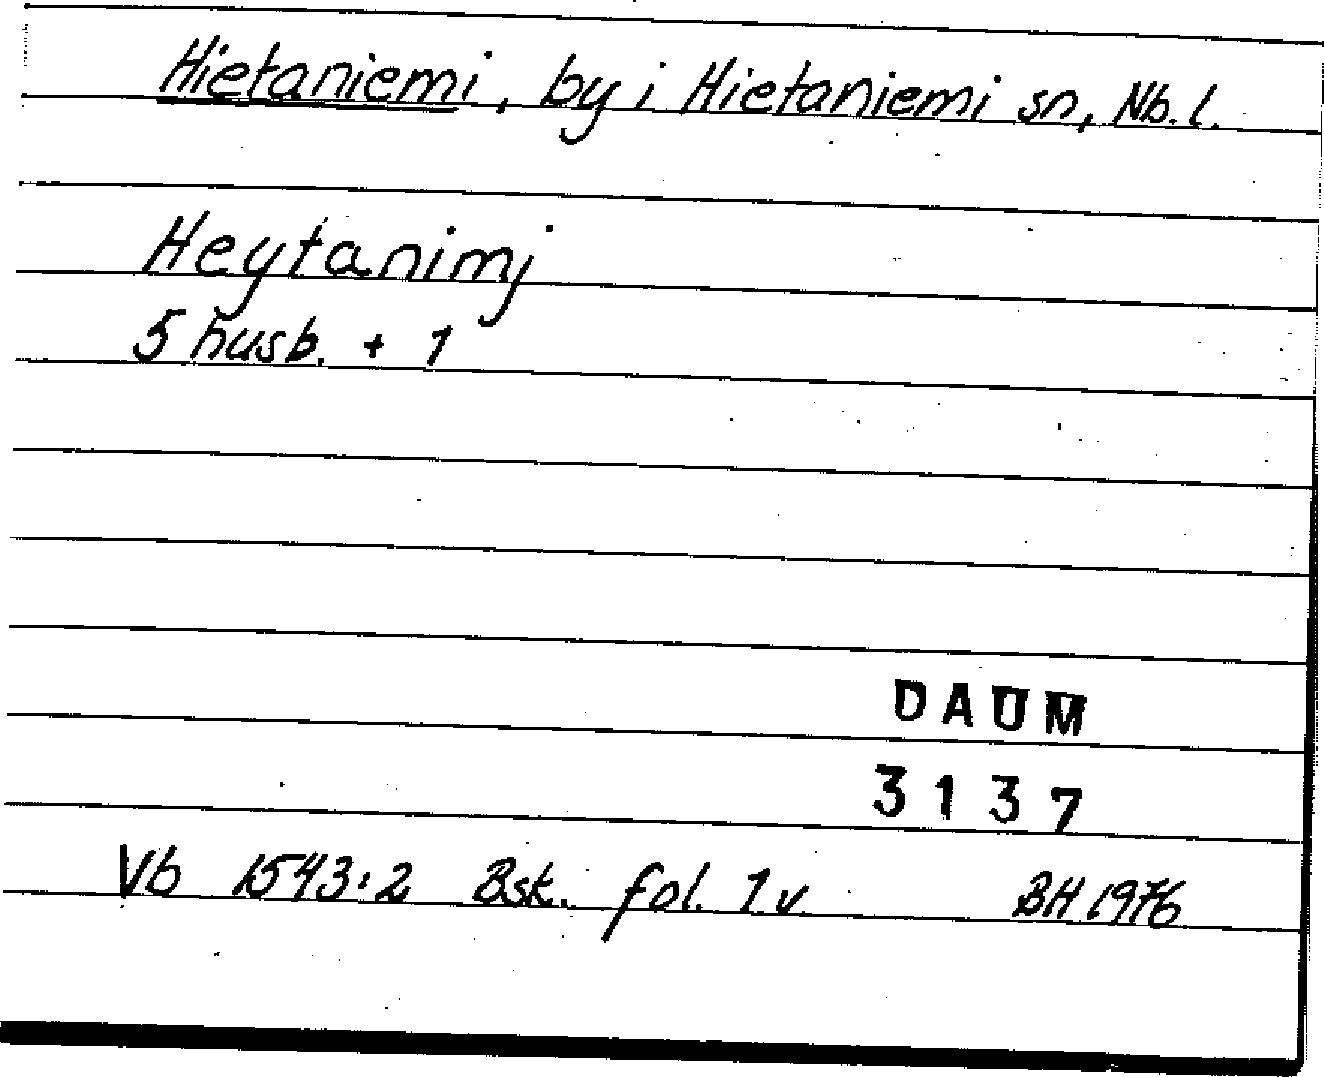 Hietaniemi, by i Hietaniemi sn, Nb. l.
Heytanimj
5 husb. + 1
DAUM
3137
Vb 1543:2 Bsk. fol. 1 v BH 1976